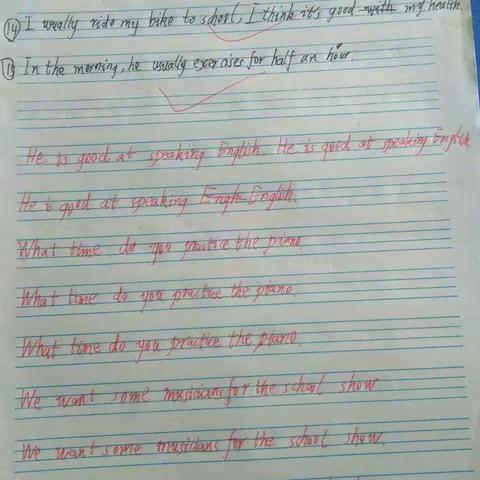 ⑭ I usually ride my bike to school, I think it's good with my health.
⑮ In the morning, he usually exercises for half an hour.
He is good at speaking English. He is good at speaking English
He is good at speaking Engh English.
What time do you practice the piano.
What time do you practice the piano.
What time do you practice the piano.
We want some musicians for the school show.
We want some musicians for the school show.